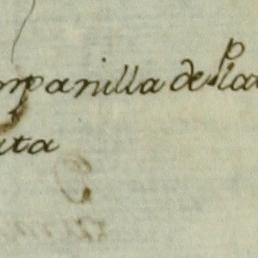 ompanilla de Pla
ata